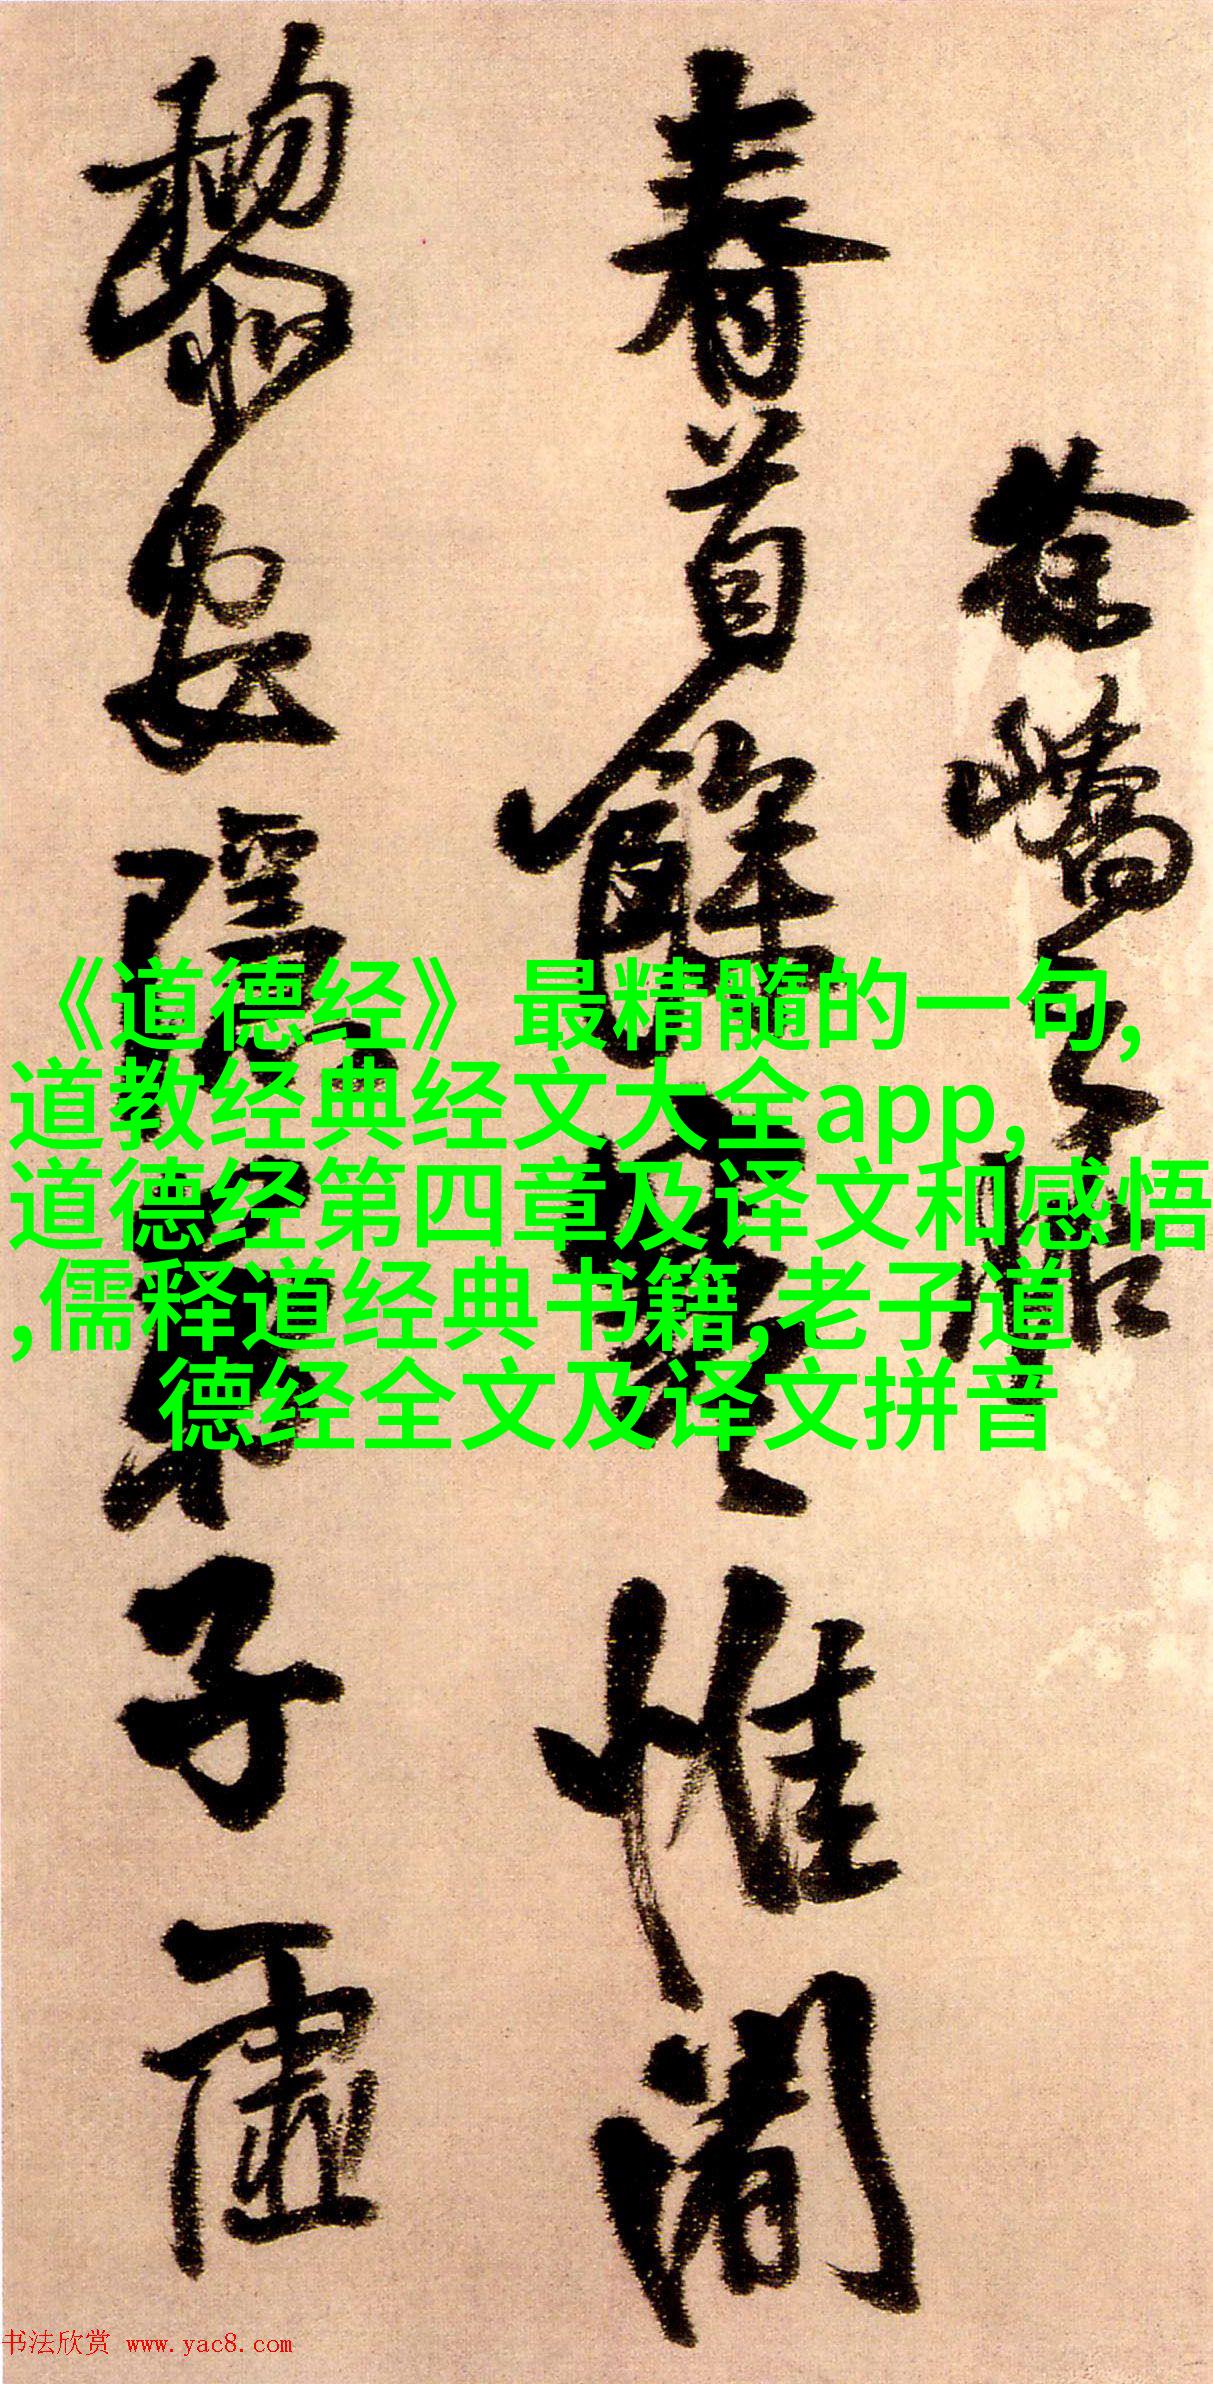 徐嶠之帖
春首餘寒惟闍
黎安隱弟子虛
《道德经》最精髓的一句,
道教经典经文大全app,
道德经第四章及译文和感悟
,儒释道经典书籍,老子道
德经全文及译文拼音
书法欣赏 www.yac8.com